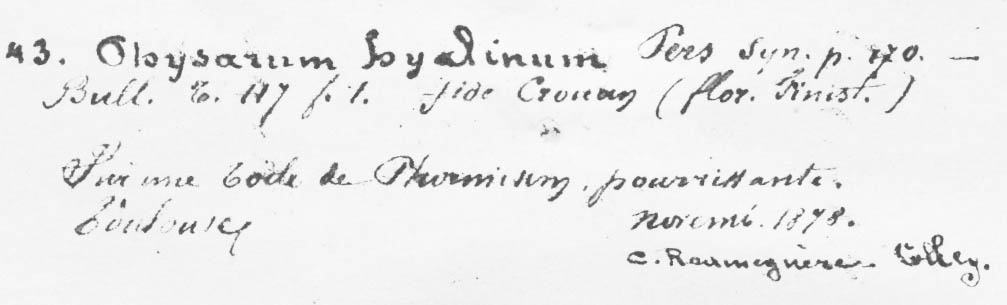 43. Physarum hyalinum Pers Syn. p. 170. —
Bull. t. 417 f. 1. fide Crouan (flor. Finist.)
Sur une tode de Phormium, pourrissante.
Toulouse novemb. 1878.
C. Roumeguère Colleg.